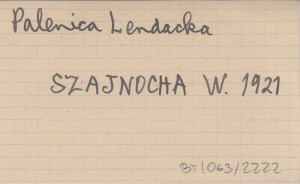 Palenica Lendacka
SZAJNOCHA W. 1921
BT/063/2222